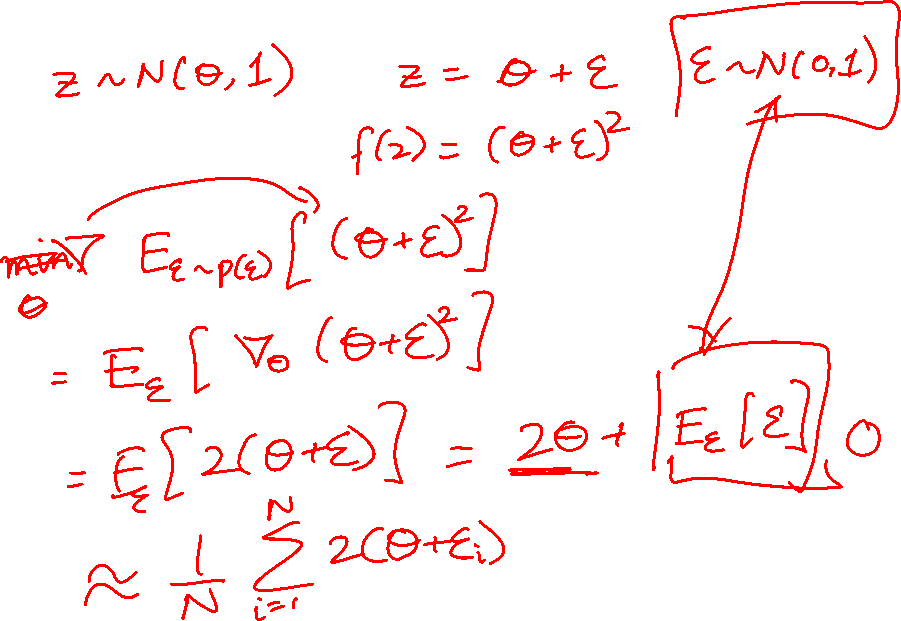 z ~ N(θ, 1) z = θ + ε ε ~ N(0,1)
f(z) = (θ+ε)²
∇_θ E_{ε~p(ε)} [(θ+ε)²]
= E_ε [∇_θ (θ+ε)²]
= E_ε [2(θ+ε)] = 2θ + E_ε[ε] 0
≈ 1/N ∑_{i=1}^{N} 2(θ+ε_i)